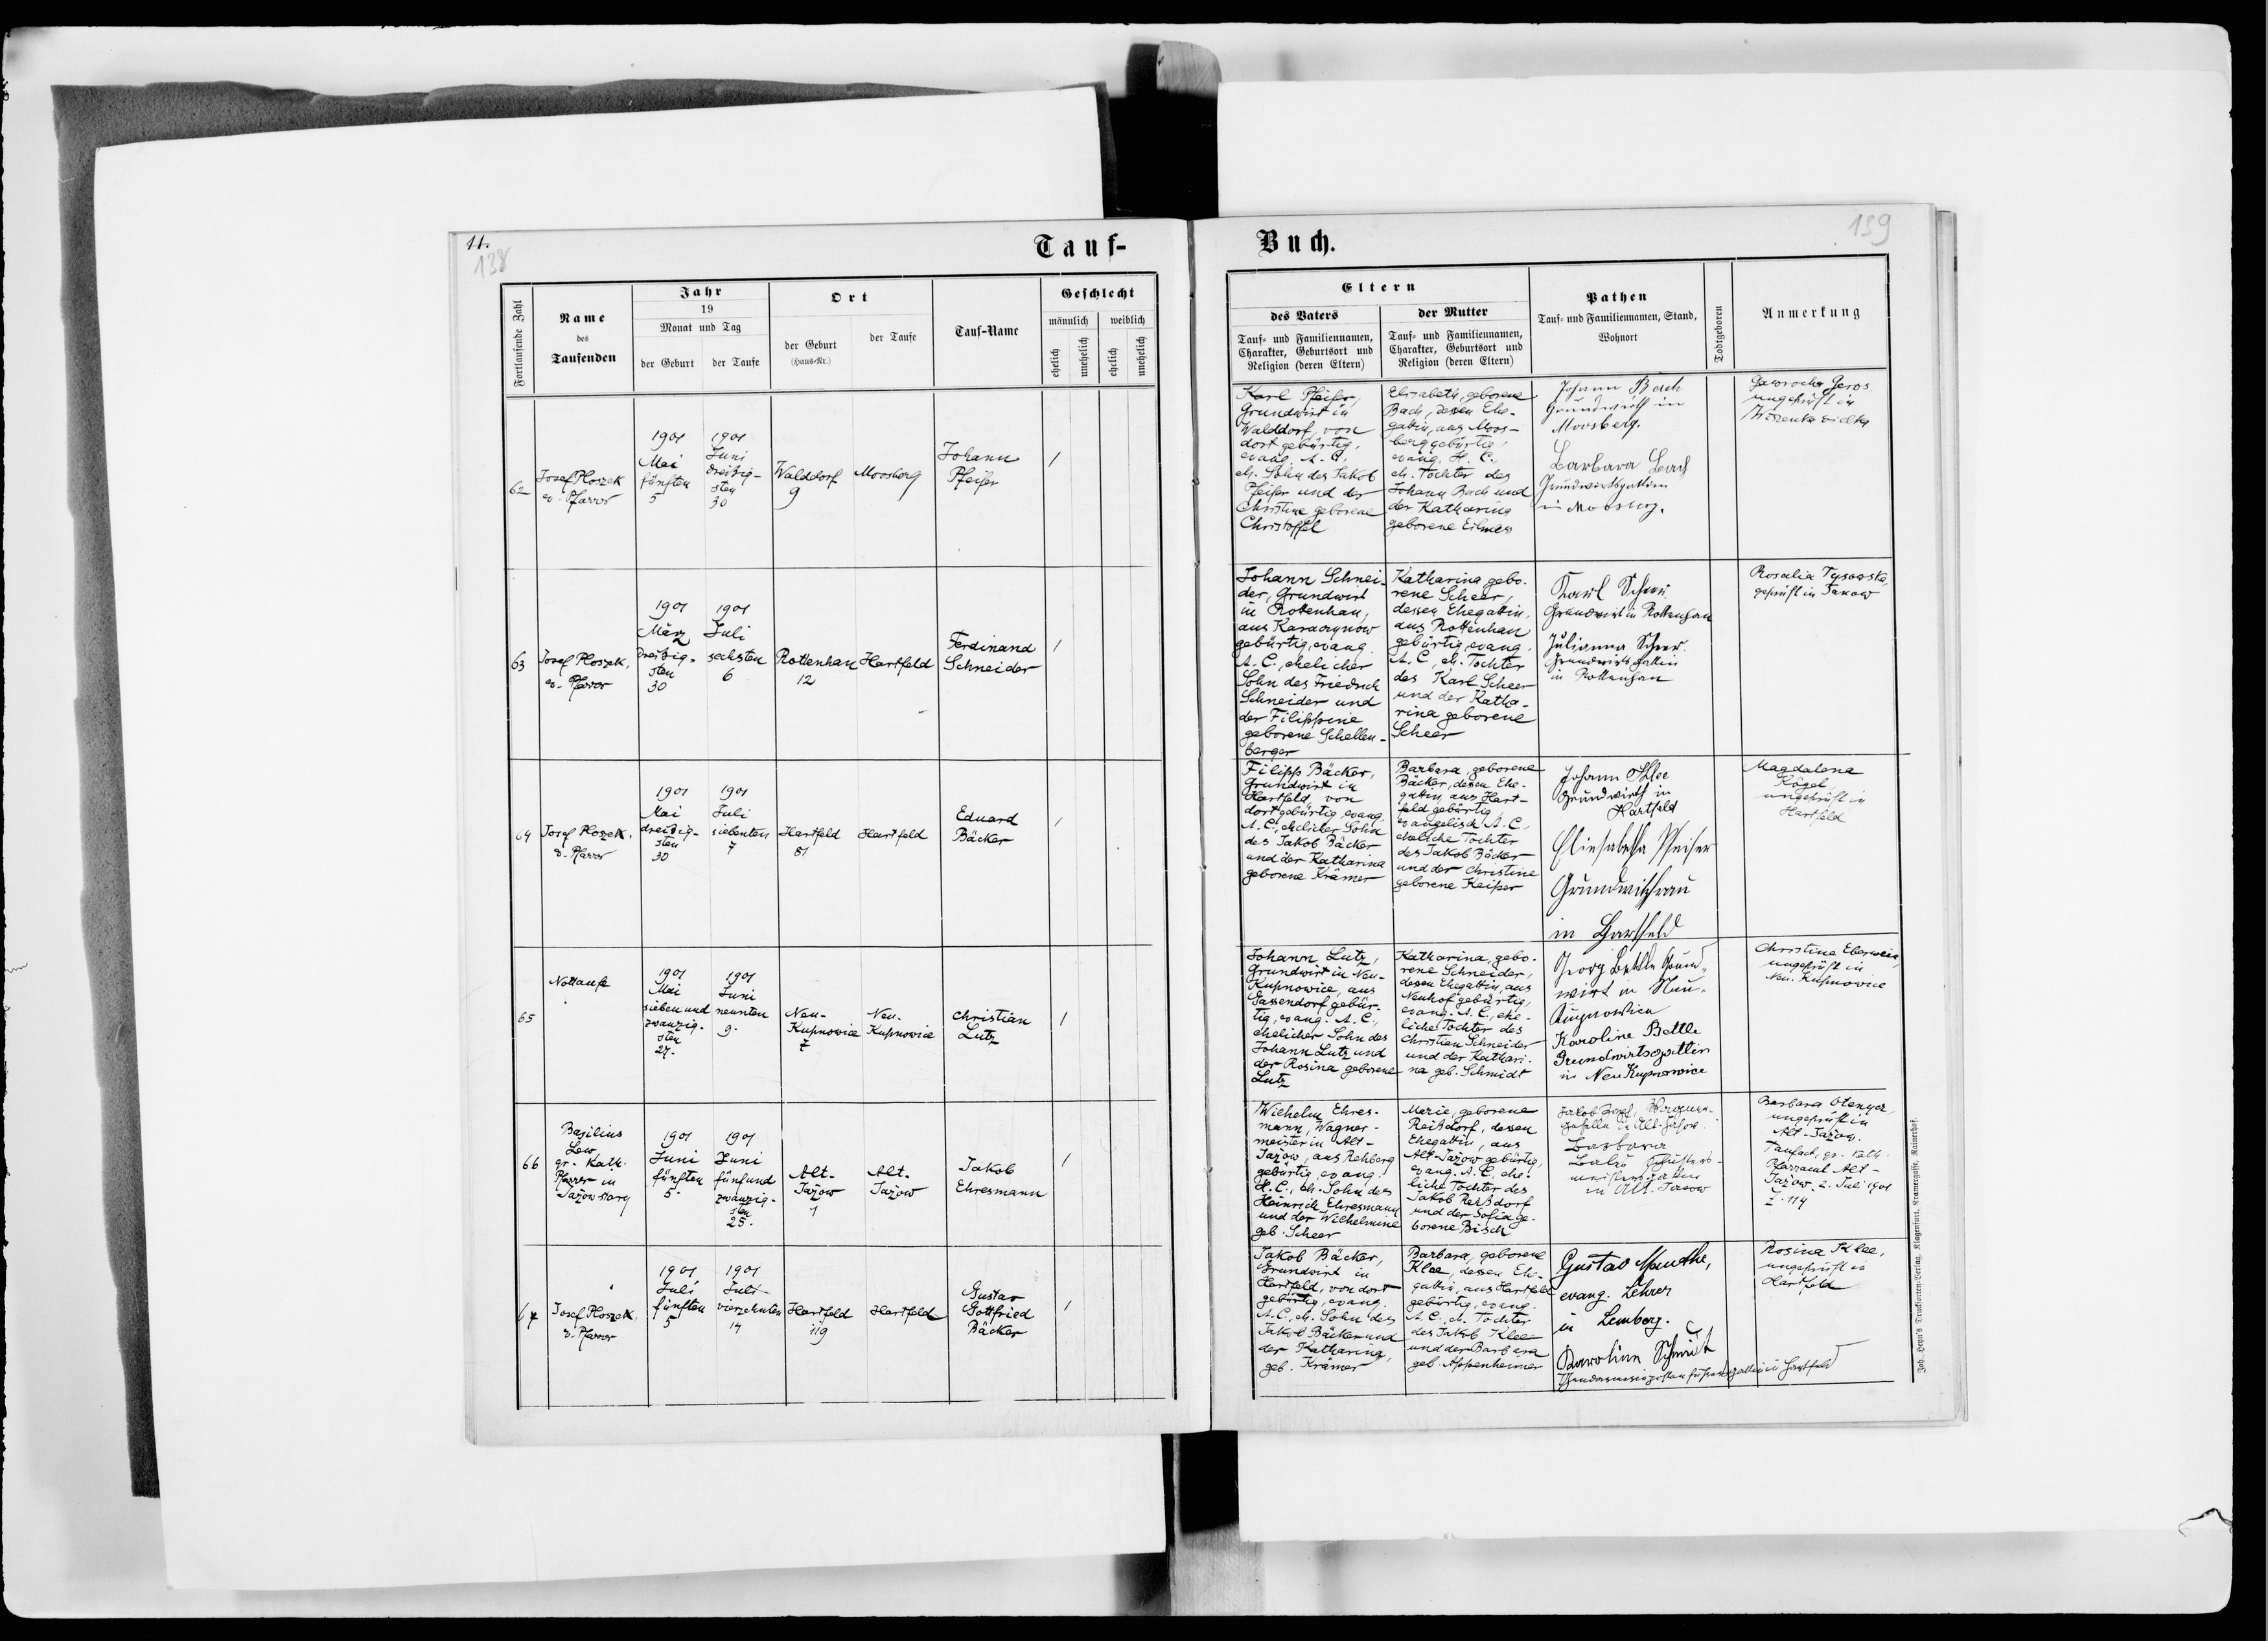 11.
138
Tauf-
Fortlaufende Zahl
Name
des
Taufenden
Jahr
19
Monat und Tag
der Geburt
der Taufe
Ort
der Geburt
(Haus-Nr.)
der Taufe
Tauf-Name
Geschlecht
männlich
weiblich
ehelich
unehelich
ehelich
unehelich
62
Josef Ploszek
ev. Pfarrer
1901
Mai
fünften
5
1901
Juni
dreißig-
sten
30
Walddorf
9
Moosberg
Johann
Pfeifer
1
63
Josef Ploszek,
ev. Pfarrer
1901
März
dreißig-
sten
30
1901
Juli
sechsten
6
Rottenhan
12
Hartfeld
Ferdinand
Schneider
1
64
Josef Ploszek,
ev. Pfarrer
1901
Mai
dreißig-
sten
30
1901
Juli
siebenten
7
Hartfeld
81
Hartfeld
Eduard
Bäcker
1
65
Nottaufe
1901
Mai
sieben und
zwanzig-
sten
27.
1901
Juni
neunten
9.
Neu-
Kupnowice
7
Neu-
Kupnowice
Christian
Lutz
1
66
Basilius
Lew,
gr. Kath.
Pfarrer in
Jażow stary
1901
Juni
fünften
5.
1901
Juni
fünfund
zwanzig-
sten
25.
Alt-
Jażow
1
Alt-
Jażow
Jakob
Ehresmann
1
67
Josef Ploszek,
ev. Pfarrer
1901
Juli
fünften
5
1901
Juli
vierzehnten
14
Hartfeld
119
Hartfeld
Gustav
Gottfried
Bäcker
1
139
Buch.
Eltern
des Vaters
Tauf- und Familiennamen,
Charakter, Geburtsort und
Religion (deren Eltern)
der Mutter
Tauf- und Familiennamen,
Charakter, Geburtsort und
Religion (deren Eltern)
Pathen
Tauf- und Familiennamen, Stand,
Wohnort
Todtgeboren
Anmerkung
Karl Pfeifer,
Grundwirt in
Walddorf, von
dort gebürtig,
evang. A. C.
eh. Sohn des Jakob
Pfeifer und der
Christine geborene
Christoffel
Elisabeth, geborene
Bach, dessen Ehe-
gattin, aus Moos-
berg gebürtig,
evang. H. C.,
eh. Tochter des
Johann Bach und
der Katharina
geborene Eilmes
Johann Bach
Grundwirth in
Moosberg.
Barbara Bach
Grundwirtsgattin
in Moosberg.
ungeprüft in
Johann Schnei-
der, Grundwirt
in Rottenhan,
aus Karaczynow
gebürtig, evang.
A. C., ehelicher
Sohn des Friedrich
Schneider und
der Filippine
geborene Schellen-
berger
Katharina gebo-
rene Scheer,
dessen Ehegattin,
aus Rottenhan
gebürtig, evang.
A. C., eh. Tochter
des Karl Scheer
und der Katha-
rina geborene
Scheer
Karl Scheer
Grundwirt in Rottenhan
Julianna Scheer.
Grundwirts gattin
in Rottenhan
Rosalia Tysowska,
geprüft in Janow
Filipp Bäcker,
Grundwirt in
Hartfeld, von
dort gebürtig, evang.
A. C., ehelicher Sohn
des Jakob Bäcker
und der Katharina
geborene Krämer
Barbara, geborene
Bäcker, dessen Ehe-
gattin, aus Hart-
feld gebürtig
evangelisch A. C.,
eheliche Tochter
des Jakob Bäcker
und der Christine
geborene Keiper
Johann Klee
Grundwirth in
Hartfeld
Eliesabetha Pfeifer
Grundwirthfrau
in Hartfeld
Magdalena
Kögel,
ungeprüft in
Hartfeld
Johann Lutz,
Grundwirt in Neu-
Kupnowice, aus
Gassendorf gebür-
tig, evang. A. C.,
ehelicher Sohn des
Johann Lutz und
der Rosina geborene
Lutz
Katharina, gebo-
rene Schneider,
dessen Ehegattin, aus
Neuhof gebürtig,
evang. A. C., ehe-
liche Tochter des
Christian Schneider
und der Kathari-
na geb. Schmidt
Georg Bettle Grund-
wirt in Neu-
Kupnowice
Karoline Bettle
Grundwirtsgattin
in Neu Kupnowice
Christina Eberwein,
ungeprüft in
Neu-Kupnowice
Wilhelm Ehres-
mann, Wagner-
meister in Alt-
Jażow, aus Rehberg
gebürtig, evang.
H. C., eh. Sohn des
Heinrich Ehresmann
und der Wilhelmine
geb. Scheer
Marie, geborene
Reißdorf, dessen
Ehegattin, aus
Alt-Jażow gebürtig,
evang. A. C., ehe-
liche Tochter des
Jakob Reißdorf
und der Sofia ge-
borene Bisch
Barbara
in Alt-Jazow
Barbara Olenycz
ungeprüft in
Alt-Jażow.
Taufact, gr. kath.
Pfarramt Alt-
Jażow. 2. Juli 1901
Z. 114
Jakob Bäcker,
Grundwirt in
Hartfeld, von dort
gebürtig, evang.
A. C., eh. Sohn des
Jakob Bäcker und
der Katharina,
geb. Krämer
Barbara, geborene
Klee, dessen Ehe-
gattin, aus Hartfeld
gebürtig, evang.
A. C., eh. Tochter
des Jakob Klee
und der Barbara
geb. Appenheimer
Gustav Manthe,
evang. Lehrer
in Lemberg.
Karolina Schmidt
Gendarmeriepostenführersgattin in Hartfeld
Rosina Klee,
ungeprüft in
Hartfeld
Joh. Heyn's Drucksorten-Verlag, Klagenfurt, Kramergasse, Rainerhof.